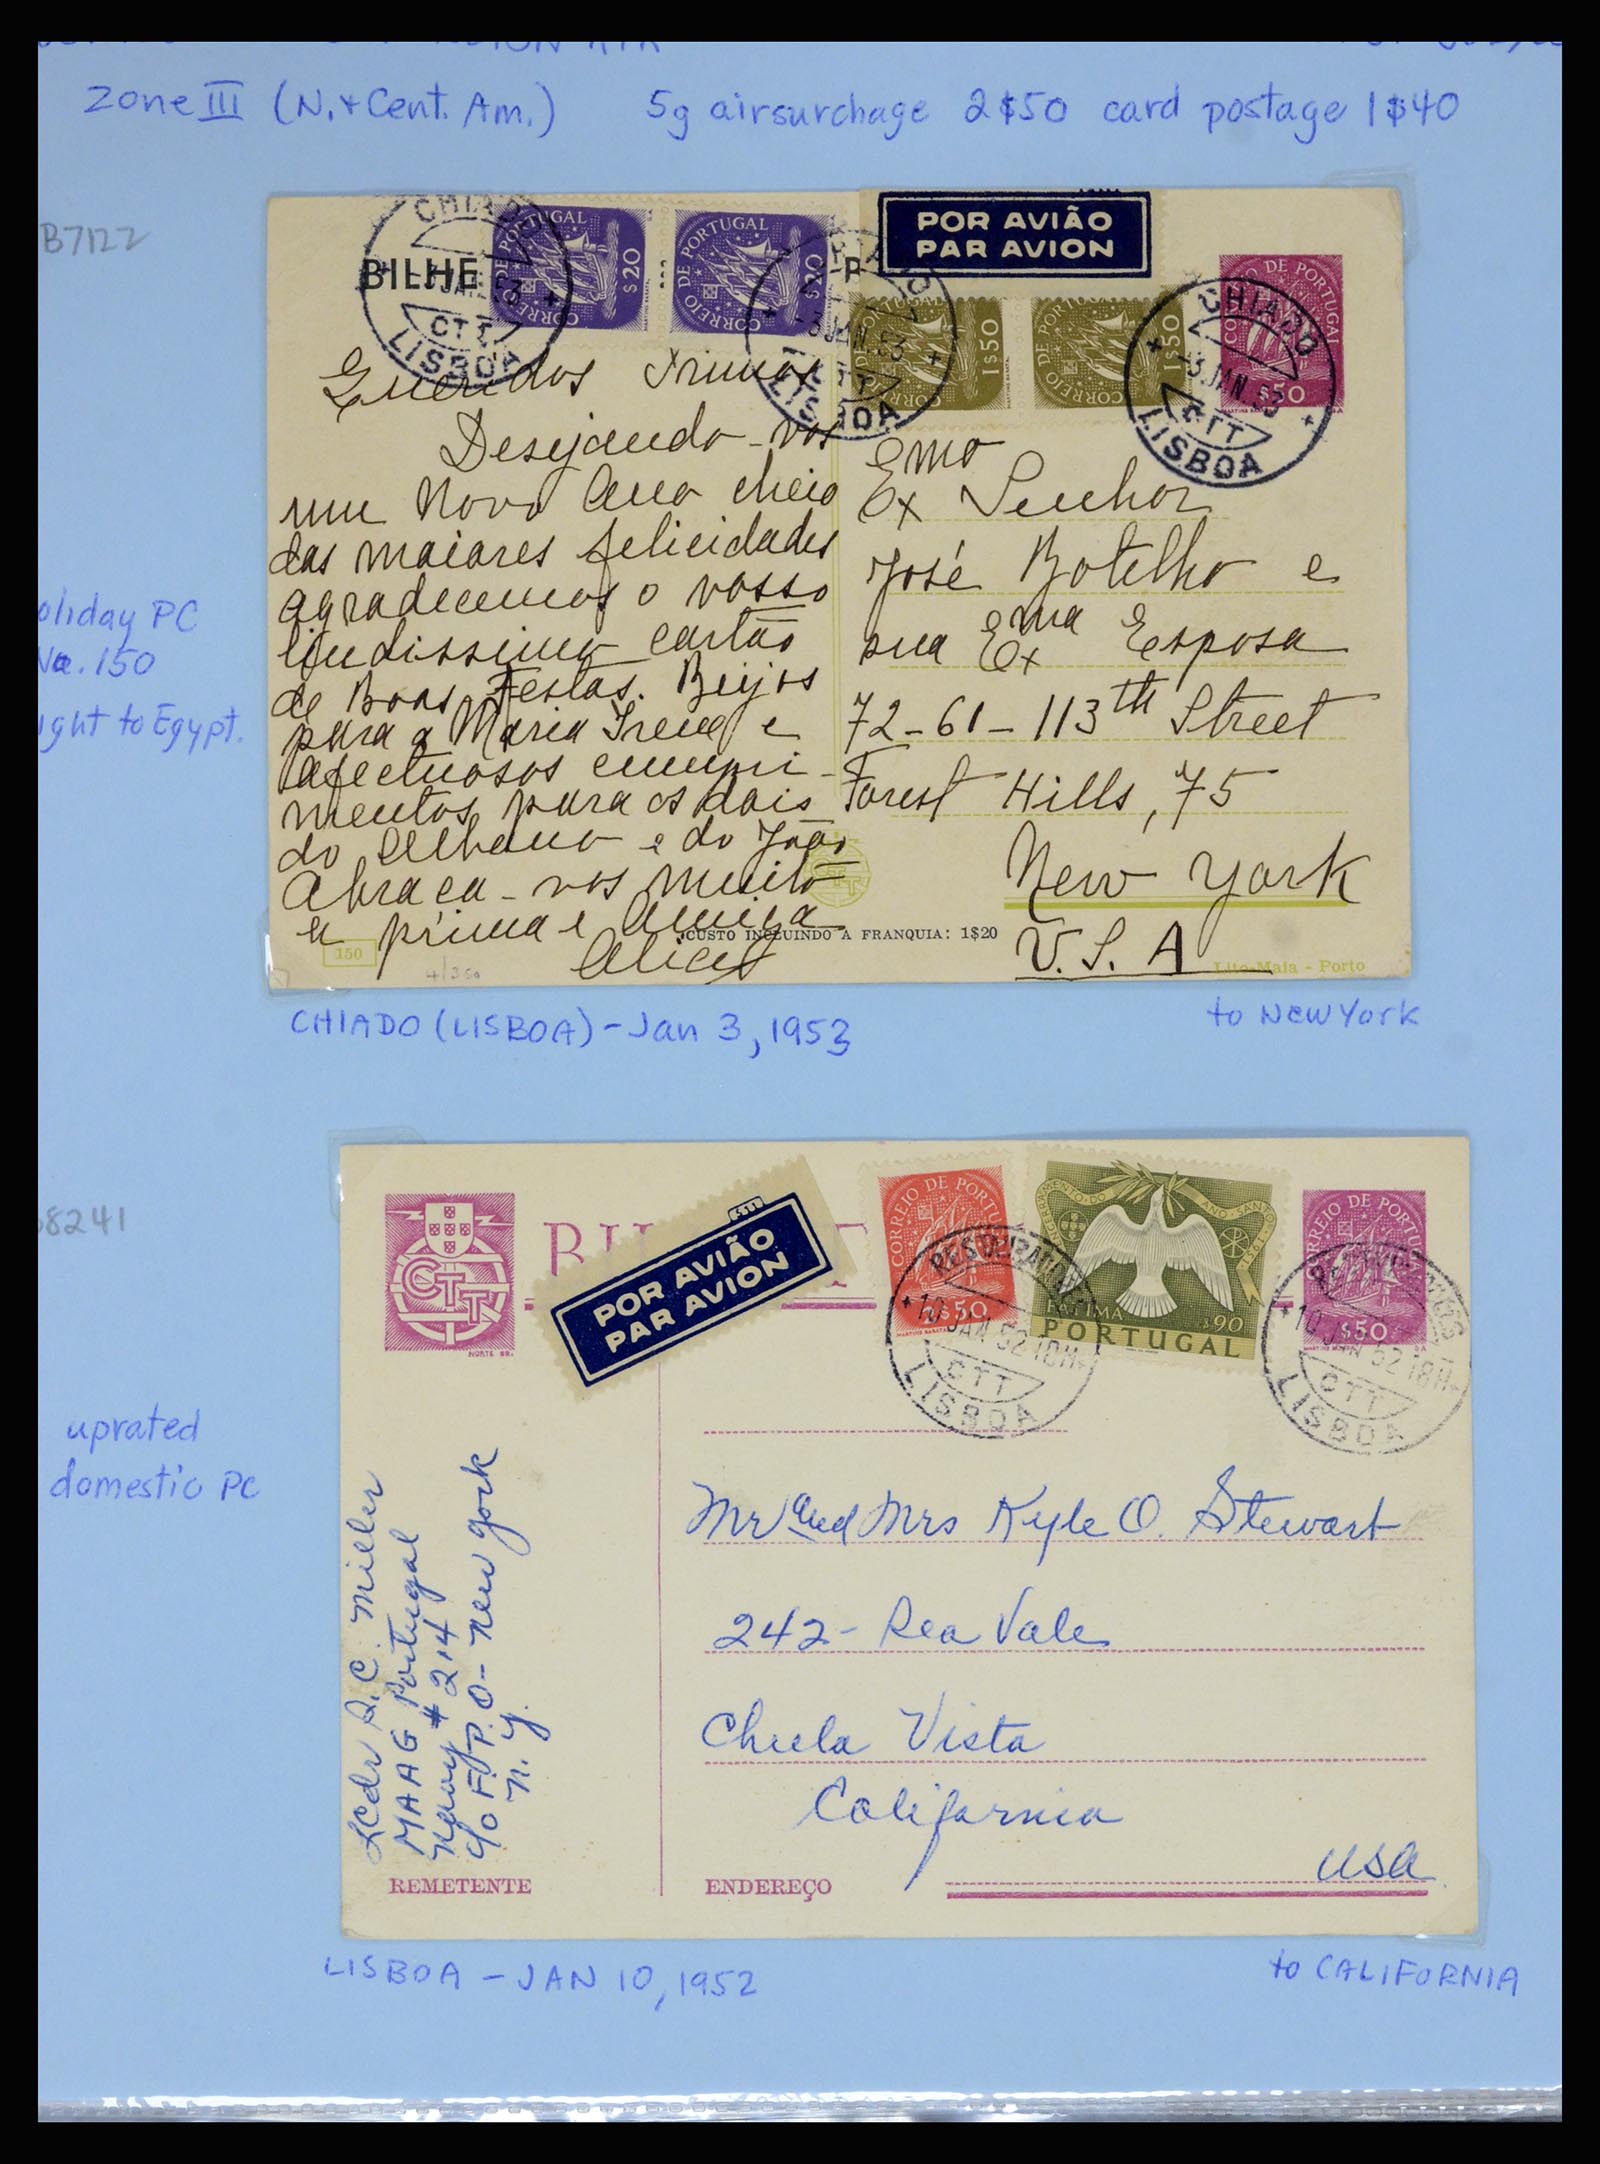 Zone III (N. + Cent. Am.) 5g airsurchage 2$50 card postage 1$40
B7122
CHIADO
CTT
LISBOA
BILHE
CORREIO DE PORTUGAL
$20
CORREIO DE PORTUGAL
$20
LISBOA
P
POR AVIÃO
PAR AVION
1$50
CORREIO DE PORTUGAL
1$50
CHIADO
3 JAN. 53
CTT
LISBOA
$50
Queridos Primos
Desejando-vos
um Novo Ano cheio
das maiores felicidades
agradecemos o vosso
lindissimo cartão
de Boas Festas. Beijos
para a Maria Irene e
afectuosos cumpri-
mentos para os dois
do Albano e do João
Abraça-vos muito
a prima e amiga
Alice
Exmo Senhor
José Botelho e
sua Exma Esposa
72-61-113th Street
Forest Hills, 75
New York
U.S.A
150
4/350
CUSTO INCLUINDO A FRANQUIA: 1$20
Lito-Maia - Porto
oliday PC
No. 150
ght to Egypt.
CHIADO (LISBOA) - Jan 3, 1953
to NEW YORK
8241
CTT
NORTE GR.
POR AVIÃO
PAR AVION
CORREIO DE PORTUGAL
$50
FATIMA
$90
PORTUGAL
10 JAN 52 18H
CTT
LISBOA
CORREIO DE PORTUGAL
$50
CTT
LISBOA
uprated
domestic PC
Lcdr A.C. Miller
MAAG Portugal
Navy # 214
c/o F.P.O - New York
N.Y.
REMETENTE
Mr and Mrs Kyle O. Stewart
242 - Rea Vale
Chula Vista
California
USA
ENDEREÇO
LISBOA - JAN 10, 1952
to CALIFORNIA